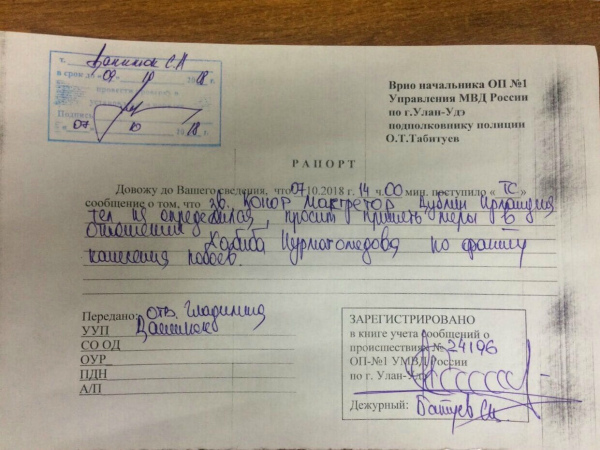 т. Данилюк С.А
в срок до «09» 10 2018 г.
провести
Подпись
«07» 10 2018 г.
Врио начальника ОП №1
Управления МВД России
по г.Улан-Удэ
подполковнику полиции
О.Т.Табитуев
РАПОРТ
Довожу до Вашего сведения, что 07.10.2018 г. 14 ч 00 мин. поступило «ТС»
сообщение о том, что зв. Конор Макгрегор Дублин Ирландия
тел не определился, просит принять меры в
отношении Хабиба Нурмагомедова по факту
нанесения побоев.
Передано: отв.
УУП Данилюк
СО ОД
ОУР
ПДН
А/П
ЗАРЕГИСТРИРОВАНО
в книге учета сообщений о
происшествиях № 24196
ОП-№1 УМВД России
по г. Улан-Удэ
Дежурный: Батуев